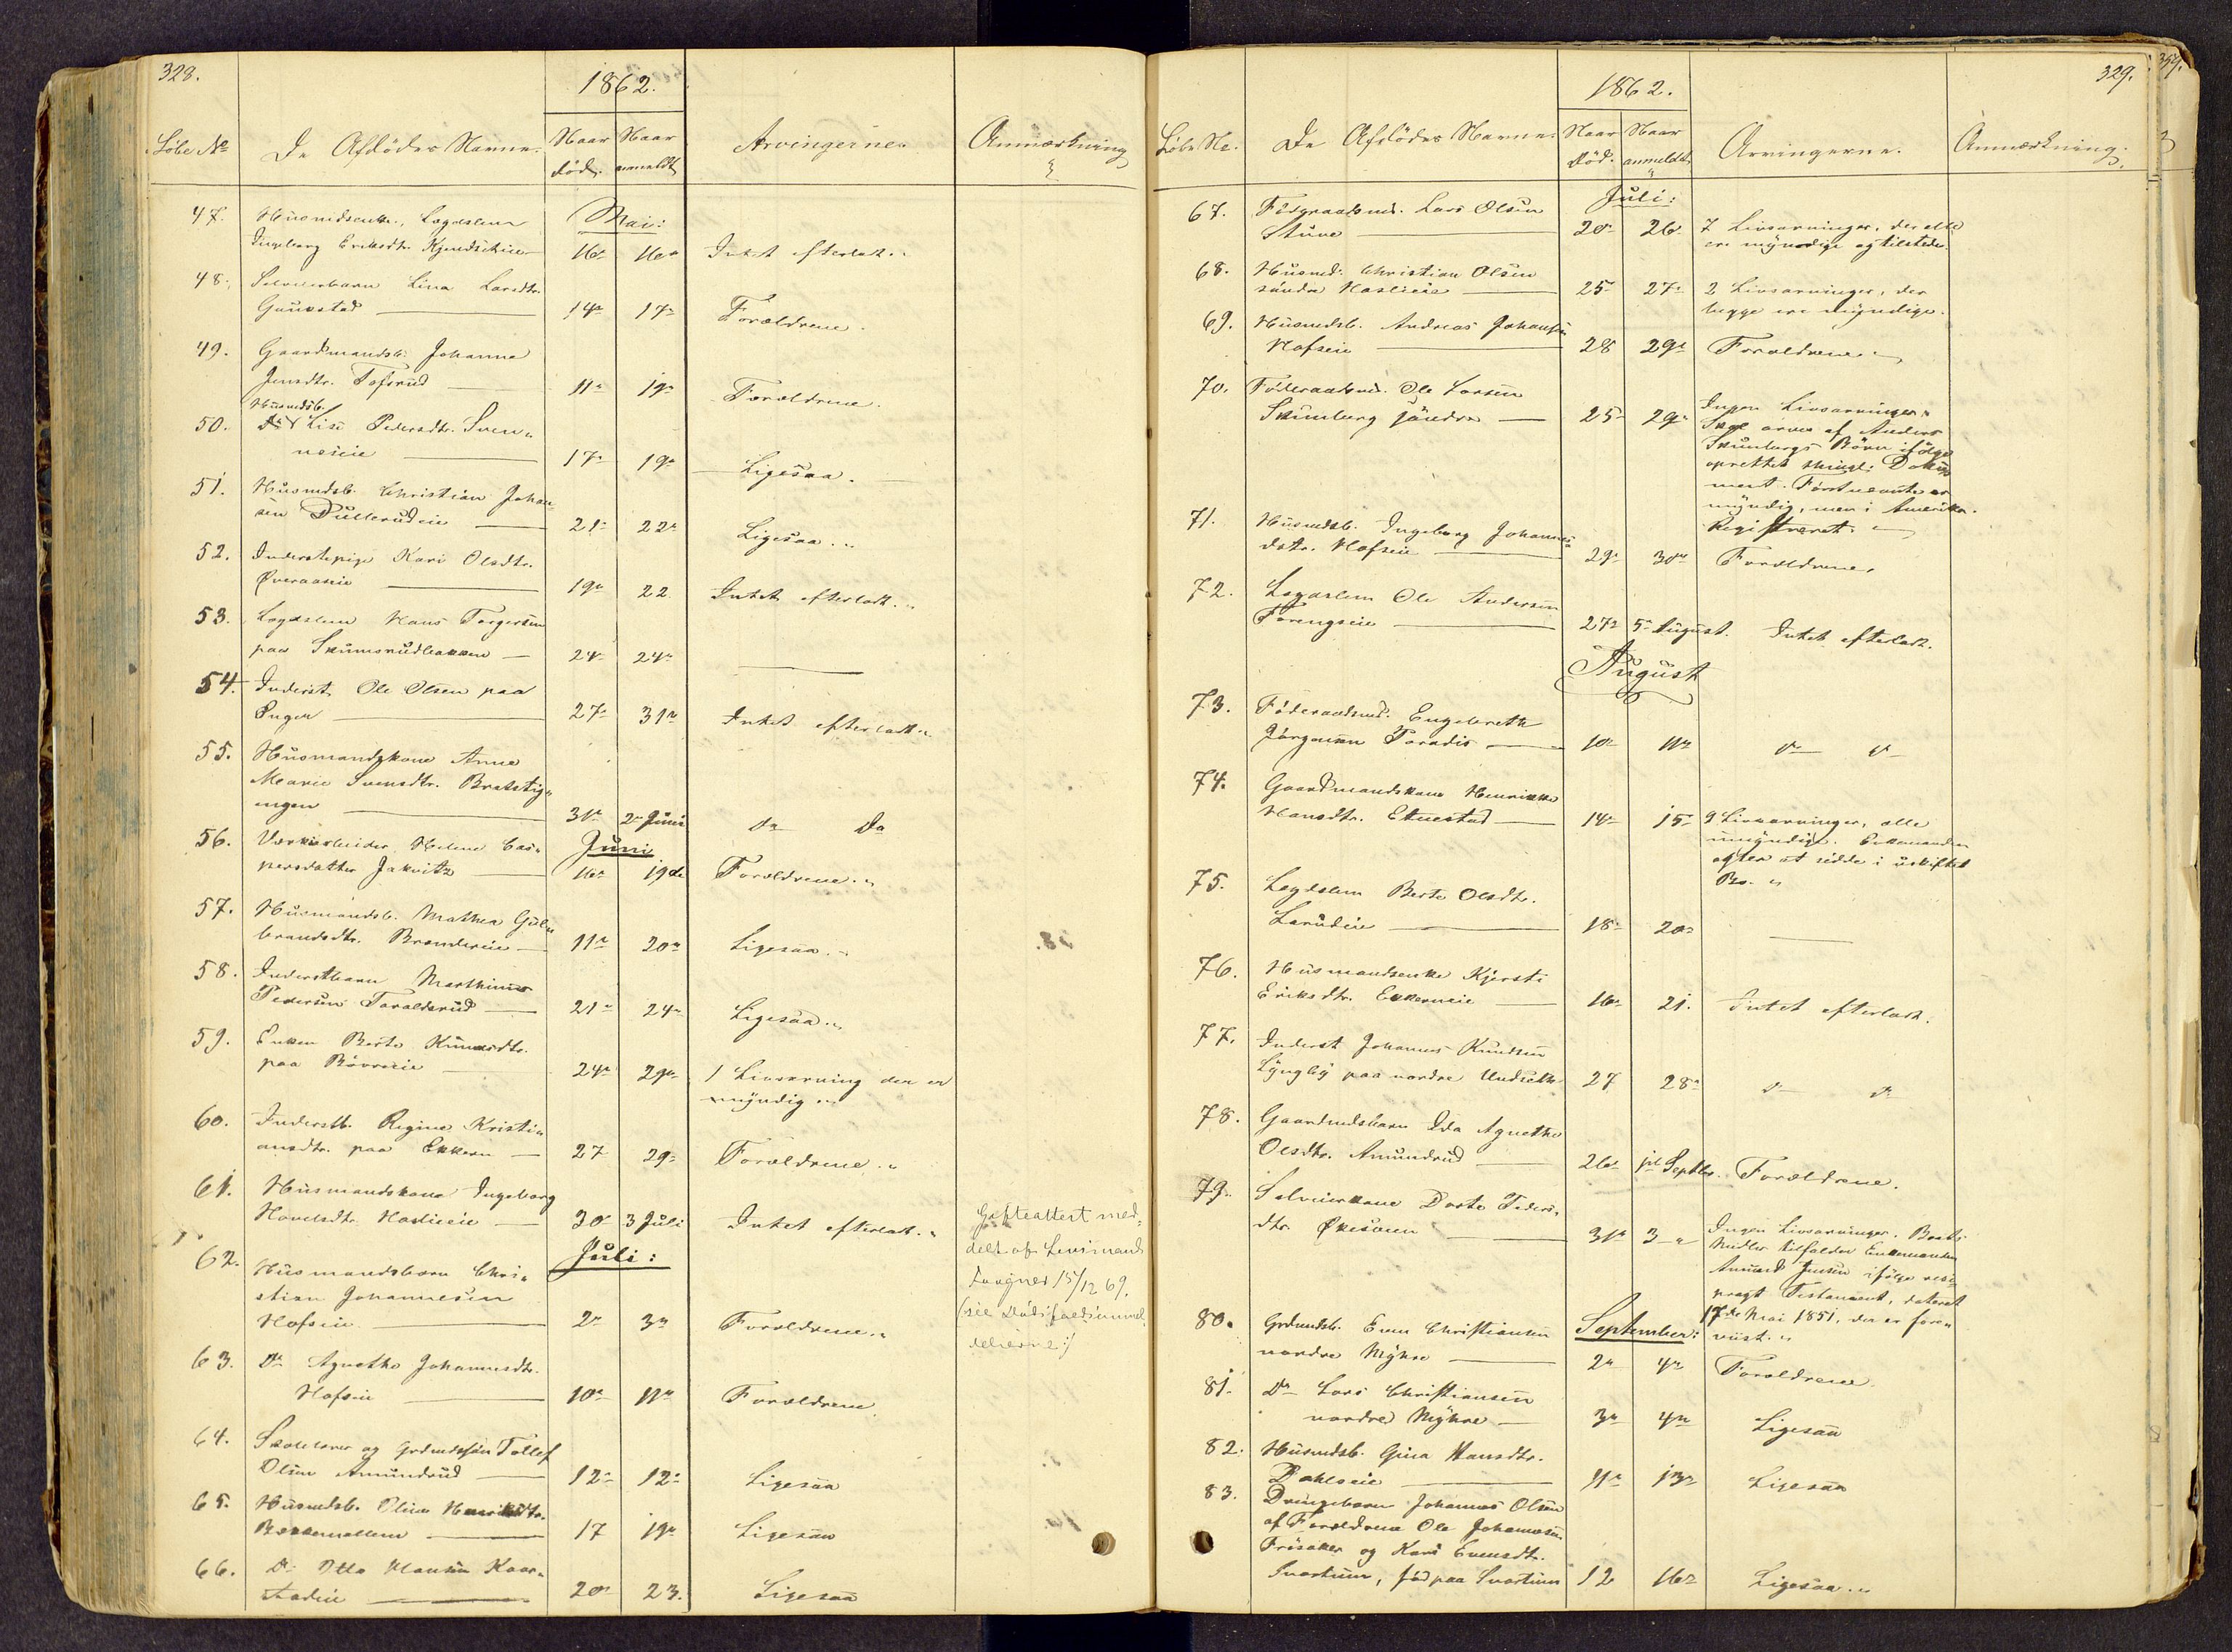 328.
1862.
Løbe No
De Afdødes Navne.
Naar død.
Naar anmeldt
Arvingerne.
Anmærkning
Mai:
47. Husmdsenke, Lægdslem
Ingeborg Eriksdtr. Kjendseie 16 16 Intet efterladt.
48. Selveierbarn Lina Larsdtr.
Gaukstad 14 17 Forældrene.
49. Gaardmandsb. Johanne
Jensdtr. Tofsrud 11 19 Forældrene.
Husmdsb.
50. Do Lise Pedersdtr. Sven-
neseie 17 19 Ligesaa.
51. Husmdsb. Christian Johan
sen Dullerudeie 21 22 Ligesaa.
52. Inderstepige Kari Olsdtr.
Øveraaseie 19 22 Intet efterladt.
53. Lægdslem Hans Torgersen
paa Skumsrudbakken 24 24
54. Inderst Ole Olsen paa
Enger 27 31 Intet efterladt.
55. Husmandskone Anne
Marie Svensdtr. Bratstig-
ningen 31 2 Juni Do Do
Juni
56. Værksarbeider Helene Cas-
persdatter Jakvitz 16 19de Forældrene.
57. Husmandsb. Mathea Gul-
brandsdtr. Brændereie 11 20 Ligesaa.
58. Inderstbarn Marthinus
Pedersen Taraldsrud 21 24 Ligesaa.
59. Enken Berte Knudsdtr.
paa Bøvreeie 24 29 1 Livsarving der er
myndig.
60. Inderstb. Regine Kristi-
ansdtr. paa Ekkern 27 29 Forældrene.
61. Husmandskone Ingeborg
Hovelsdtr. Haslieeie 30 3 Juli Intet efterladt.
Skifteattest med-
delt af Lensmand
15/12 69.
(see Dødsfaldsanmel-
delserne)
Juli:
62. Husmandsbarn Chri-
stian Johannesen
Hofseie 2 3 Forældrene.
63. Do Agnethe Johannesdtr.
Hofseie 10 11 Forældrene
64. Skolelærer og Grdmdssøn Tollef
Olsen Amundrud 12 12 Ligesaa
65. Husmdsb. Oline Henriksdtr.
Bakkemellem 17 19 Ligesaa
66. Do Otto Hansen Kaar-
stadeie 20 23. Ligesaa
329.
1862.
Løbe No.
De Afdødes Navne.
Naar Død.
Naar anmeldt.
Arvingerne.
Anmærkning.
Juli:
67. Føderaadsmd. Lars Olsen
Stuve 20 26 7 Livsarvinger, der alle
ere myndige og tilstede.
68. Husmd. Christian Olsen
søndre Haslieeie 25 27 2 Livsarvinger, der
begge ere myndige.
69. Husmdsb. Andreas Johansen
Hofseie 28 29 Forældrene.
70. Føderaadsmd. Ole Larsen
Skinberg søndre 25 29 Ingen Livsarvinger.
Skal arves af Anders
Skinbergs Børn ifølge
oprettet thingl. Doku-
ment. Førstnævnte er
myndig, men i Amerika.
Registreret.
71. Husmdsb. Ingeborg Johannes-
datr. Hofseie 29 30 Forældrene.
72. Lægdslem Ole Andersen
Forengseie 27 5 August. Intet efterladt.
August
73. Føderaadsmd. Engebreth
Jørgensen Paradis 10 11 do do
74. Gaardmandskone Henrikke
Hansdtr. Elnestad 14 15 9 Livsarvinger, alle
umyndige. Enkemanden
agter at sidde i uskiftet
Bo.
75. Lægdslem Berte Olsdtr.
Larudeie 18 20
76. Husmandsenke Kjersti
Eriksdtr. Ekkerneie 16 21. Intet efterladt.
77. Inderst Johannes Knudsen
Lyngby paa nordre Undseth 27 28 do do
78. Gaardmdsbarn Ida Agnethe
Olsdtr. Amundrud 26 1st Septbr. Forældrene.
79. Selveierkone Dorte Peders-
dtr. Økesveen 31 3 Ingen Livsarvinger. Boets
Midler tilfalder Enkemanden
Amund Jensen ifølge resi-
progt Testament, dateret
17de Mai 1851, der er fore-
viist.
September:
80. Grdmdsb. Even Christiansen
nordre Myhre 2 4 Forældrene.
81. Do Lars Christiansen
nordre Myhre 3 4 Ligesaa
82. Husmdsb. Gina Hansdtr.
Dahlseie 11 13 Ligesaa
83. Drengebarn Johannes Olsen
af Forældrene Ole Johannesen
Frøsaker og Kari Evensdtr.
Svartum, født paa Svartum 12 16 Ligesaa.